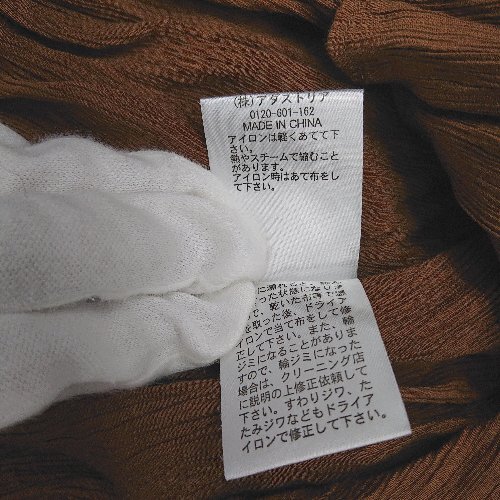 (株)アダストリア
0120-601-162
MADE IN CHINA
アイロンは軽くあてて下
さい。
熱やスチームで縮むこと
があります。
アイロン時はあて布をし
て下さい。
に濡れ
った状態に
で、乾いた
を取った後、ドライア
イロンで当て布をして修
正して下さい。また、輪
ジミになることがありま
すので、輪ジミになった
場合は、クリーニング店
に説明の上修正依頼して
下さい。すわりジワ、た
たみジワなどもドライア
イロンで修正して下さい。